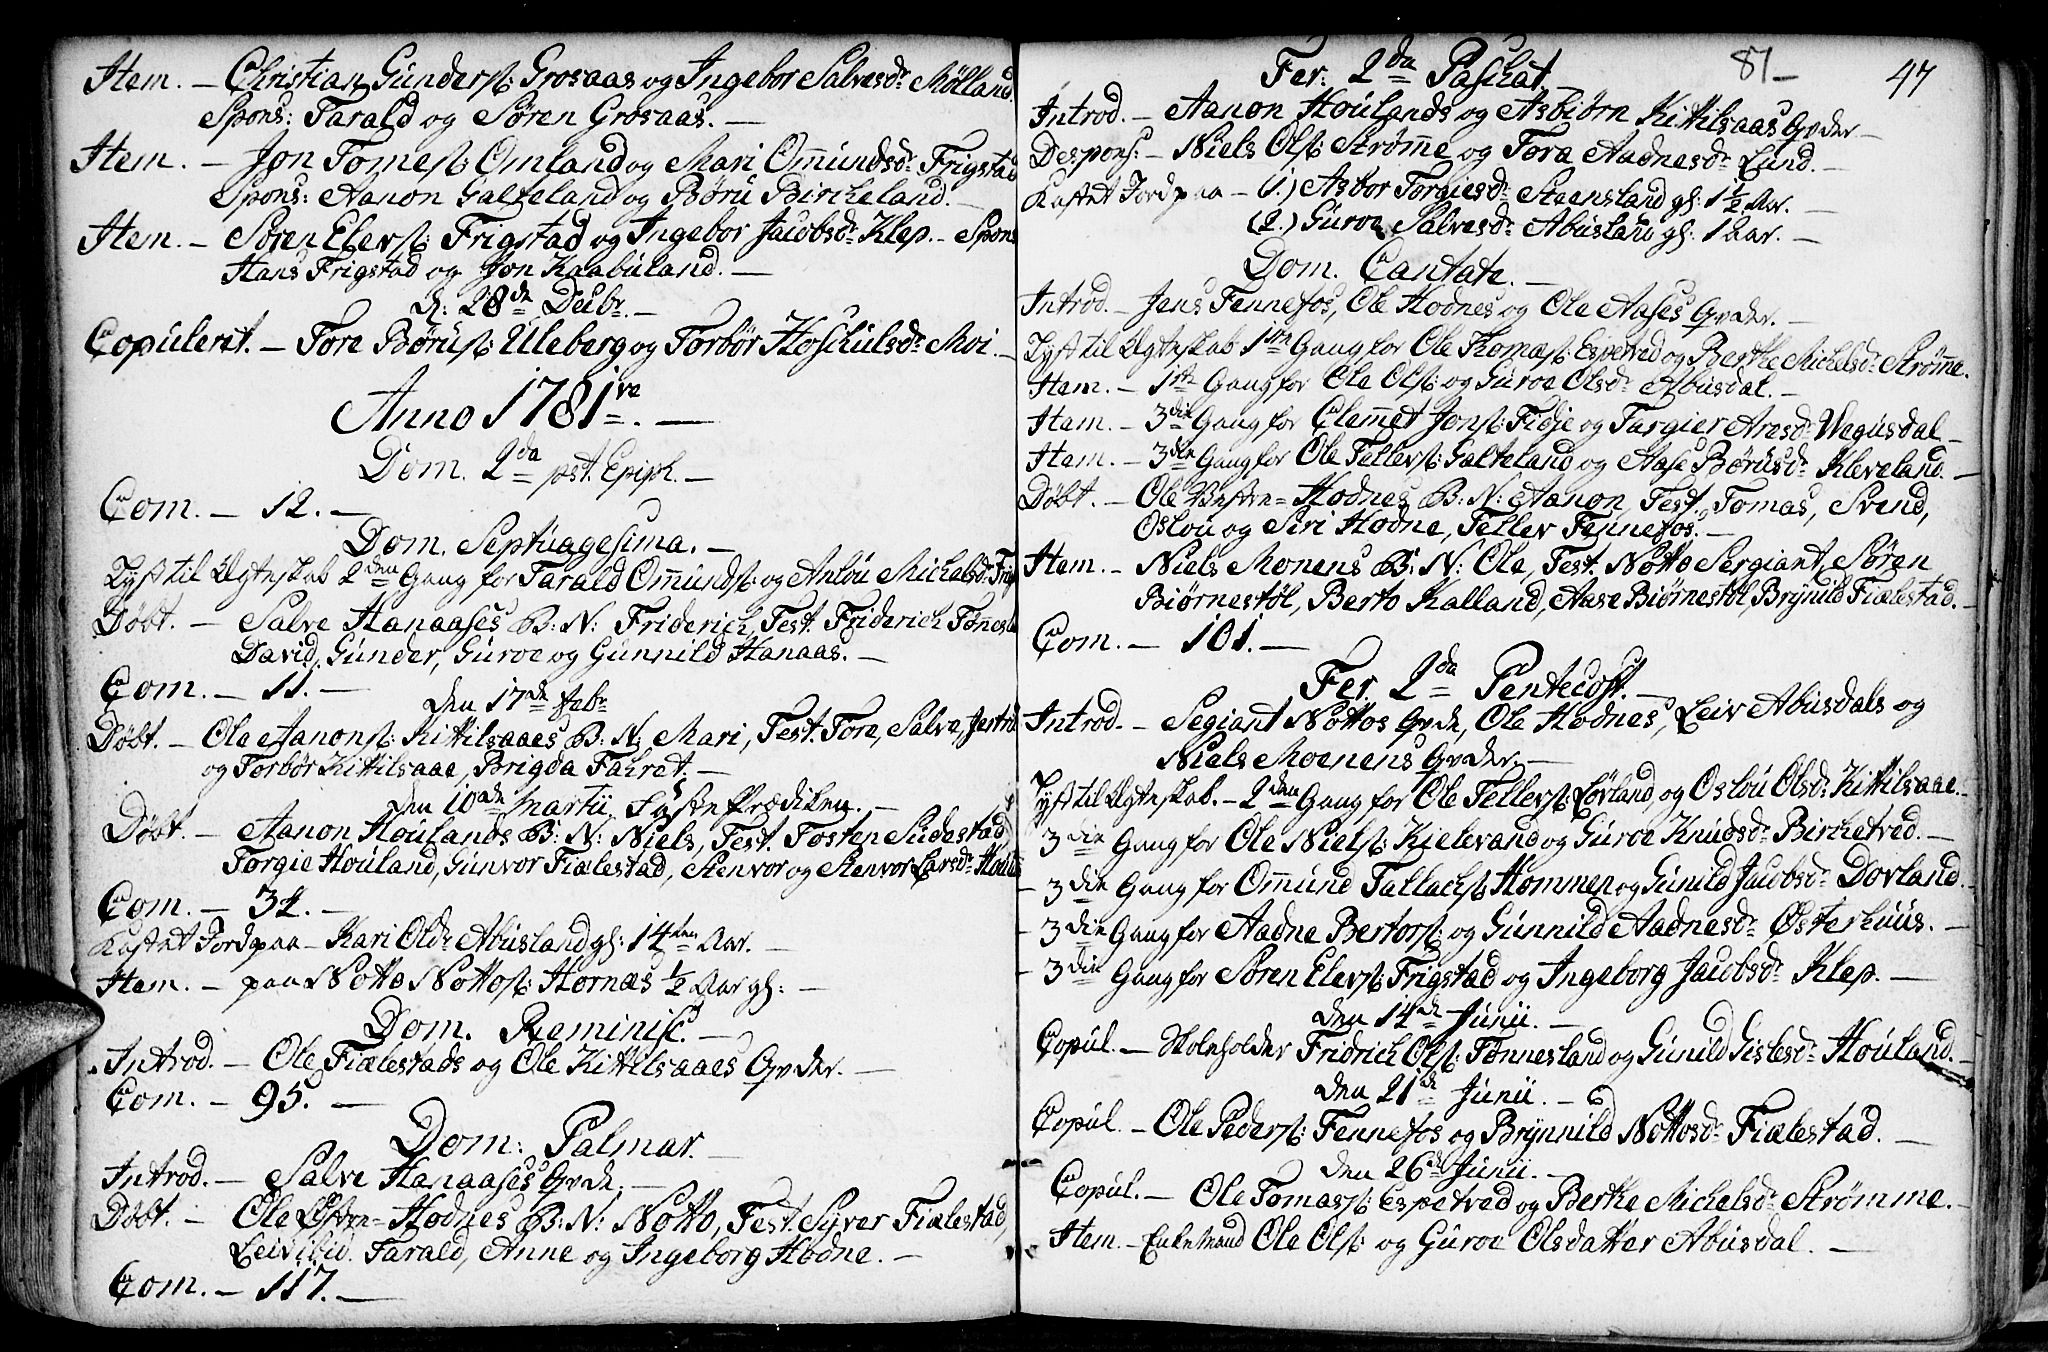 Item. – Christian Gunders: Grosaas og Ingebor Salvesdr Mølland.
Spons: Tarald og Søren Grosaas. –
Item. – Jon Tomes: Omland og Mari Omundsdr Frigstad
Spons: Aanon Galteland og Børu Bircheland. –
Item. – Søren Elevs: Frigstad og Ingebor Jacobsdr Klep. – Spons
Hans Frigstad og Jon Kaabuland. –
d: 28de Decbr. –
Copuleret. – Tore Børus: Uleberg og Torbør Hoschulsdr Moi. –
Anno 1781ve. –
Dom. 2da pst. Epiph. –
Com. – 12. –
Dom. Septuagesima. –
Lyst til Egteskab 2den Gang for Tarald Omunds: og Anlou Michelsdr Frigs
Døbt. – Salve Hanaases B: N: Friderich, Test. Friderich Tønnesla
David, Gunder, Guroe og Gunnild Hanaas. –
Com. – 11. –
den 17de Febr
Døbt. – Ole Aanons: Kittilsaaes B: N: Mari, Test. Tore, Salve, Jertru
og Torbør Kittilsaae, Brigda Fahret. –
den 10de Martii Faste Prædiken. –
Døbt. – Aanon Houlands B: N: Niels, Test. Tosten Sudestad
Torgie Houland, Gunvor Fiælestad, Stenvor og Stenvor Larsdr Houl
Com. – 34. –
Kastet Jord paa – Kari Olsdr Abusland gl: 14ten Aar. –
Item. – paa Notto Nottos: Hornæs 1/2 Aar gl: –
Dom. Reminisc. –
Introd. – Ole Fiælestads og Ole Kittilsaaes Qvder. –
Com. – 95. –
Dom: Palmar. –
Introd. – Salve Hanaases Qvde. –
Døbt. – Ole Østre= Hodnes B: N: Notto, Test. Syver Fiælestad,
Leiv ibid. Tarald, Anne og Ingeborg Hodne. –
Com. – 117. –
81 –
47
Fer: 2da Paschat. –
Introd. – Aanon Houlands og Asbiørn Kittilsaas Qvder –
Despons: – Niels Ols: Strømme og Tora Aadnesdr Lund. –
Kastet Jord paa – (1.) Asbor Torgiesdr Steensland gl: 1 1/2 Aar. –
(2.) Guroe Salvesdr Abusland gl: 1 aar. –
Dom. Cantate. –
Introd. – Jens Fennefos, Ole Hodnes og Ole Aases Qvder. –
Lyst til Egteskab 1ste Gang for Ole Thomæs: Espetved og Berthe Michelsdr Strømme.
Item. – 1ste Gang for Ole Ols: og Guroe Olsdr Abusdal. –
Item. – 3die Gang for Clemmet Jons: Fidje og Targier Aresdr Wegusdal –
Item. – 3die Gang for Ole Tellevs: Galteland og Aase Børusdr Kleveland. –
Døbt. – Ole Vestre= Hodnes B: N: Aanon, Test. Tomas, Svend,
Oslou og Siri Hodne, Tellev Fennefos. –
Item. – Niels Monens B: N: Ole, Test. Notto Sergiant, Søren
Biørnestøl, Berto Kalland, Aase Biørnestøl, Brynild Fiælestad. –
Com. – 101. –
Fer. 2da Pentecost. –
Introd. – Segiant Nottos Qvde, Ole Hodnes, Leiv Abusdals og
Niels Moenens Qvder. –
Lyst til Egteskab. – 2den Gang for Ole Tellevs: Løvland og Oslou Olsdr Kittilsaae. –
3die Gang for Ole Niels: Kielevand og Guroe Knudsdr Birchetved. –
– 3die Gang for Omund Tallachs: Hommen og Gunild Jacobsdr Dovland. –
– 3die Gang for Aadne Bertors: og Gunnild Aadnesdr Østerhuus. –
– 3die Gang for Søren Elevs: Frigstad og Ingeborg Jacobsdr Klep. –
den 14de Junii. –
Copul. – Skoleholder Fridrich Ols: Tønnesland og Gunild Gislesdr Houland. –
den 21de Junii. –
Copul. – Ole Peders: Fennefos og Brynnild Nottosdr Fiælestad. –
den 26de Junii. –
Copul. – Ole Tomass: Espetved og Berthe Michelsdr Strømme. –
Item. – Enkemand Ole Ols: og Guroe Olsdatter Abusdal. –